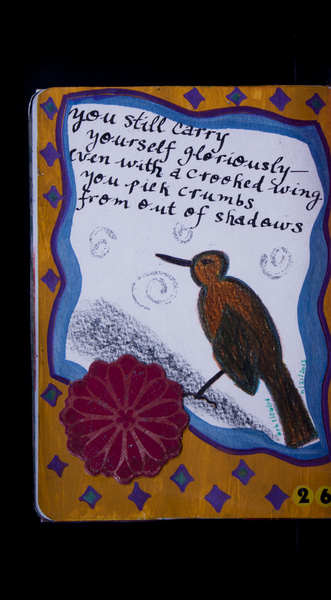 you still carry
yourself gloriously—
even with a crooked wing
you pick crumbs
from out of shadows
26